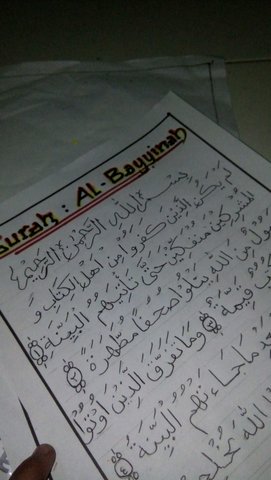 Surah : AL-Bayyinah
بِسْمِ اللهِ الرَّحْمٰنِ الرَّحِيْمِ
لَمْ يَكُنِ الَّذِيْنَ كَفَرُوْا مِنْ اَهْلِ الْكِتَابِ وَ
الْمُشْرِكِيْنَ مُنْفَكِّيْنَ حَتّٰى تَأْتِيَهُمُ الْبَيِّنَةُ ١
سُوْلٌ مِنَ اللهِ يَتْلُوْا صُحُفًا مُطَهَّرَةً ٢
قَيِّمَةٌ ٣ وَمَا تَفَرَّقَ الَّذِيْنَ اُوْتُوْا
مَا جَاءَتْهُمُ الْبَيِّنَةُ ٤
اللهَ